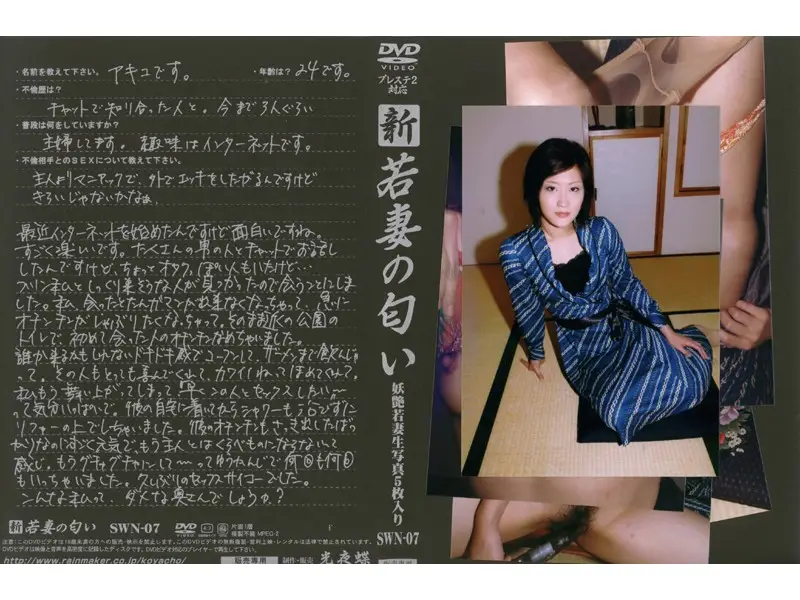 ・名前を教えて下さい。 アキユです。 ・年齢は? 24です。
・不倫歴は?
チャットで知り合った人と。今まで3人ぐらい
・普段は何をしていますか?
主婦してます。趣味はインターネットです。
・不倫相手とのSEXについて教えて下さい。
主人よりマニアックで、外でエッチをしたがるんですけど
きらいじゃないかなぁ。
最近インターネットを始めたんですけど面白いですね。
すごく楽しいです。たくさんの男の人とチャットでお話し
したんですけど、ちょっとオタクっぽい人もいたけど…
しっくり来そうな人が見つかったので会うことにしま
した。私、会ったとたんガマン出来なくなっちゃって、急に
オチンチンがしゃぶりたくなっちゃって。そのまま近くの公園の
トイレで、初めて会った人のオチンチンなめちゃいました。
誰か来るかもしれないドキドキ感でコーフンして、
って。その人もとっても喜んでくれて、カワイイねってほめてくれて。
私もう舞い上がってしまって早くこの人とセックスしたい〜
って気分いっぱいで。彼の自宅に着いてからシャワーも浴びずに
ソファーの上でしちゃいました。彼のオチンチンもさっき出したばっ
かりなのにすごく元気で、もう主人とはくらべものにならないって
感じ。もうグチャグチャにして〜ってゆうかんじで何回も何回
もいっちゃいました。久しぶりのセックスサイコーでした。
こんな私って、ダメな奥さんでしょうか?
新 若妻の匂い SWN-07 DVD VIDEO 片面1層 複製不能 MPEG-2
http://www.rainmaker.co.jp/koyacho/ 販売専用 制作・販売 光夜蝶
DVD
VIDEO
プレステ2
対応
新 若妻の匂い
妖艶若妻生写真5枚入り
SWN-07